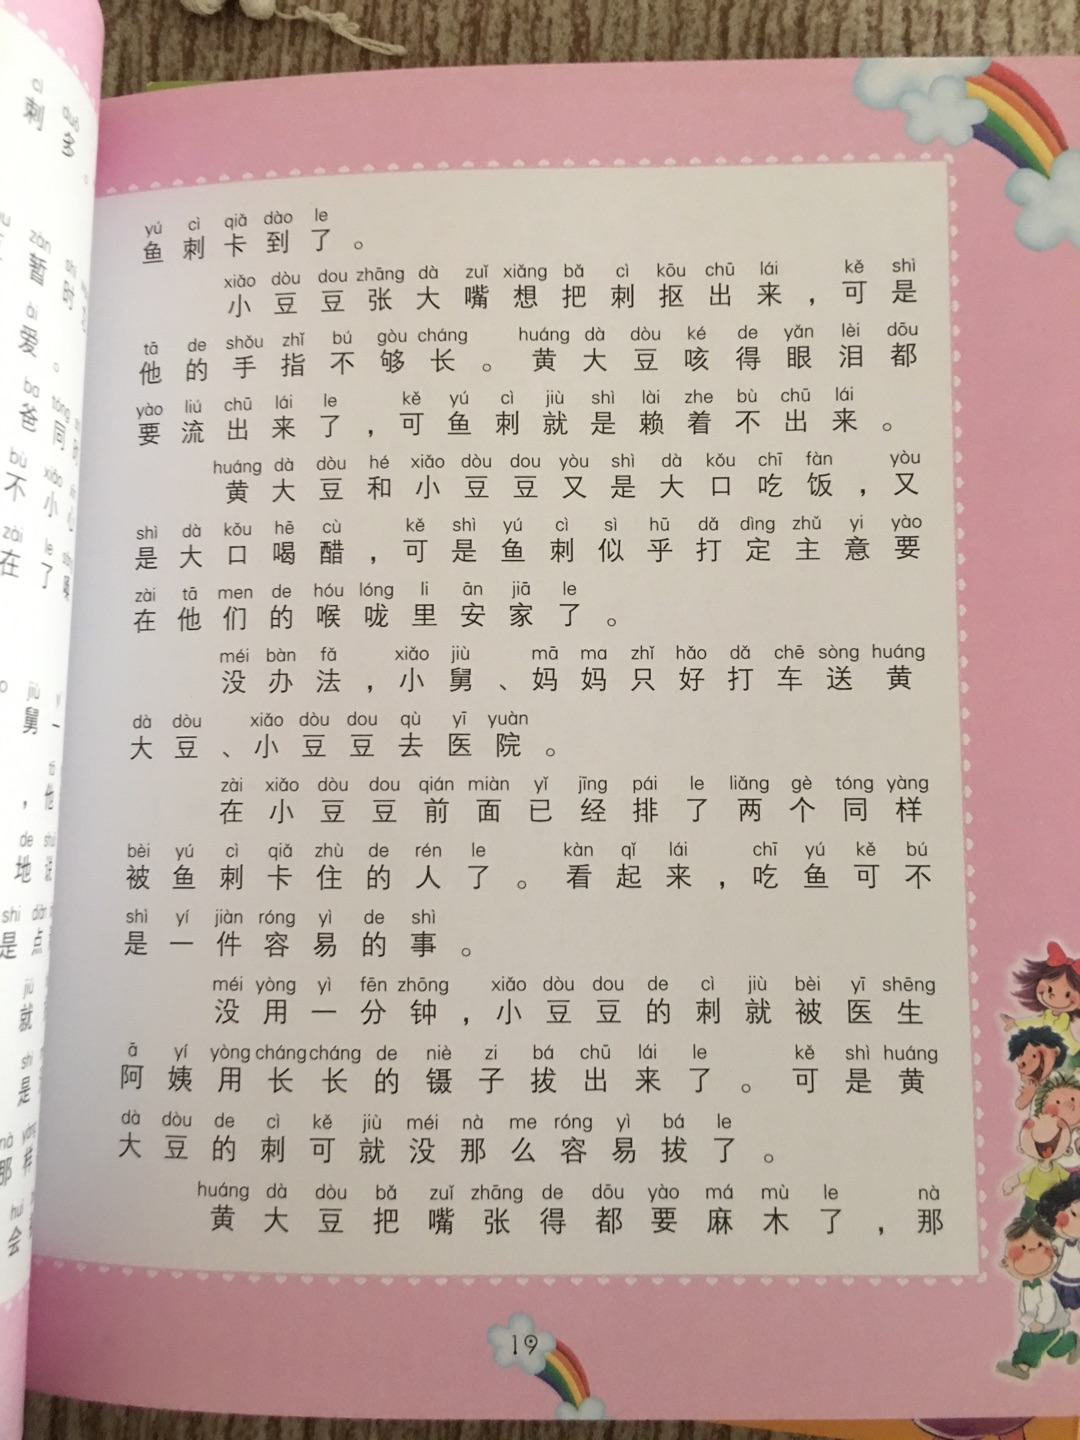 yú cì qiǎ dào le
鱼刺卡到了。
xiǎo dòu dou zhāng dà zuǐ xiǎng bǎ cì kōu chū lái kě shì
小豆豆张大嘴想把刺抠出来，可是
tā de shǒu zhǐ bú gòu cháng huáng dà dòu ké de yǎn lèi dōu
他的手指不够长。黄大豆咳得眼泪都
yào liú chū lái le kě yú cì jiù shì lài zhe bù chū lái
要流出来了，可鱼刺就是赖着不出来。
huáng dà dòu hé xiǎo dòu dou yòu shì dà kǒu chī fàn yòu
黄大豆和小豆豆又是大口吃饭，又
shì dà kǒu hē cù kě shì yú cì sì hū dǎ dìng zhǔ yi yào
是大口喝醋，可是鱼刺似乎打定主意要
zài tā men de hóu lóng li ān jiā le
在他们的喉咙里安家了。
méi bàn fǎ xiǎo jiù mā ma zhǐ hǎo dǎ chē sòng huáng
没办法，小舅、妈妈只好打车送黄
dà dòu xiǎo dòu dou qù yī yuàn
大豆、小豆豆去医院。
zài xiǎo dòu dou qián miàn yǐ jīng pái le liǎng gè tóng yàng
在小豆豆前面已经排了两个同样
bèi yú cì qiǎ zhù de rén le kàn qǐ lái chī yú kě bú
被鱼刺卡住的人了。看起来，吃鱼可不
shì yí jiàn róng yì de shì
是一件容易的事。
méi yòng yì fēn zhōng xiǎo dòu dou de cì jiù bèi yī shēng
没用一分钟，小豆豆的刺就被医生
ā yí yòng cháng cháng de niè zi bá chū lái le kě shì huáng
阿姨用长长的镊子拔出来了。可是黄
dà dòu de cì kě jiù méi nà me róng yì bá le
大豆的刺可就没那么容易拔了。
huáng dà dòu bǎ zuǐ zhāng de dōu yào má mù le nà
黄大豆把嘴张得都要麻木了，那
19